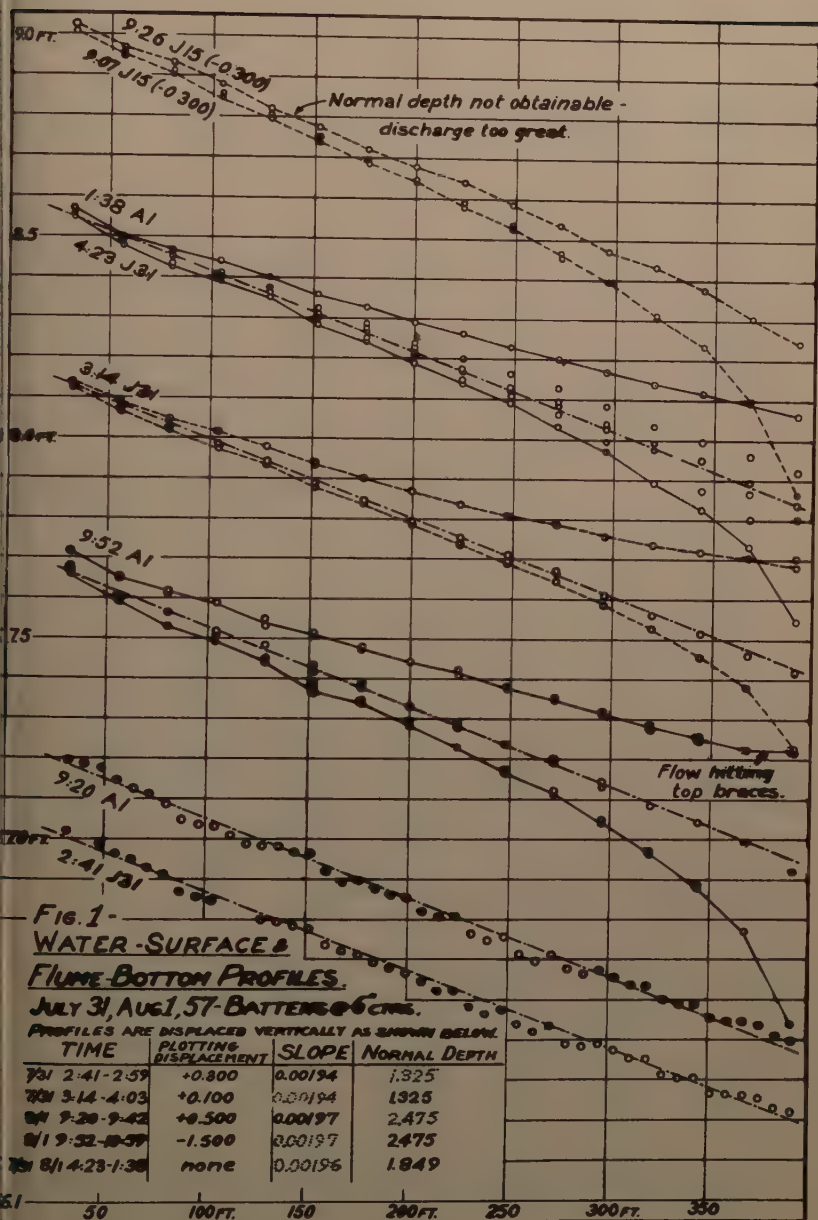 9.0 FT.
9:26 J15 (-0.300)
9:07 J15 (-0.300)
Normal depth not obtainable -
discharge too great.
1:38 A1
8.5
4:23 J31
3:14 J31
8.0 FT.
9:52 A1
7.5
Flow hitting
top braces.
9:20 A1
7.0 FT.
2:41 J31
FIG. 1 -
WATER-SURFACE &
FLUME-BOTTOM PROFILES.
JULY 31, AUG 1, 57 - BATTENS @ 6" CTRS.
PROFILES ARE DISPLACED VERTICALLY AS SHOWN BELOW.
TIME PLOTTING DISPLACEMENT SLOPE NORMAL DEPTH
7/31 2:41-2:59 +0.800 0.00194 1.325
7/31 3:14-4:03 +0.100 0.00194 1.325
8/1 9:20-9:42 +0.500 0.00197 2.475
8/1 9:52-10:57 -1.500 0.00197 2.475
7/31 8/1 4:23-1:38 none 0.00196 1.849
6.1
50 100 FT. 150 200 FT. 250 300 FT. 350